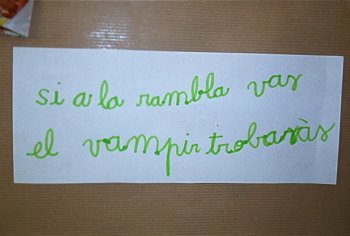 si a la rambla vas
el vampir trobaràs